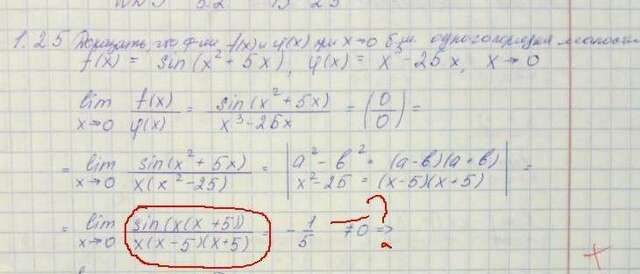 1.25 Доказать, что ф-ии f(x) и φ(x) при x→0 б.м. одного порядка малости
f(x) = sin(x² + 5x), φ(x) = x³ - 25x, x → 0
lim x→0 f(x)/φ(x) = sin(x² + 5x)/(x³ - 25x) = (0/0) =
= lim x→0 sin(x² + 5x)/(x(x² - 25)) = |a² - b² = (a-b)(a+b) x² - 25 = (x-5)(x+5)| =
= lim x→0 sin(x(x+5))/(x(x-5)(x+5)) = - 1/5 ≠ 0 ⇒ ?